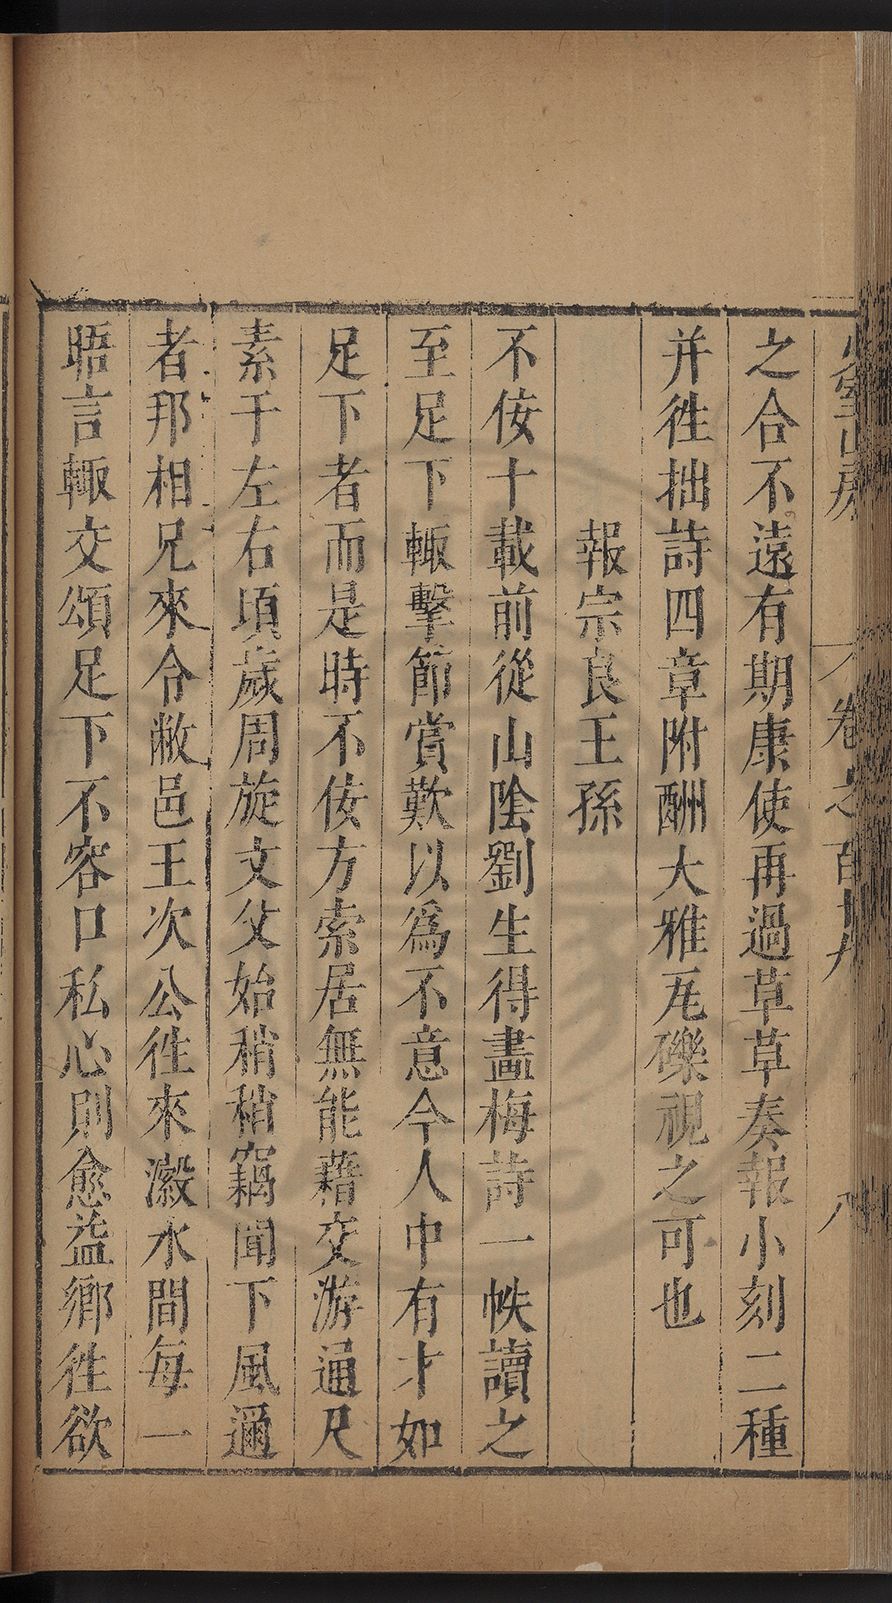 少室山房
卷之百十九
八
之合不遠有期康使再過草草奏報小刻二種
并徃拙詩四章附酬大雅瓦礫視之可也
報宗良王孫
不佞十載前從山陰劉生得畫梅詩一帙讀之
至足下輙擊節賞歎以爲不意今人中有才如
足下者而是時不佞方索居無能藉交游通尺
素于左右頃歲周旋文父始稍稍竊聞下風邇
者那相兄來令敝邑王次公徃來瀫水間每一
晤言輙交頌足下不容口私心則愈益鄉徃欲